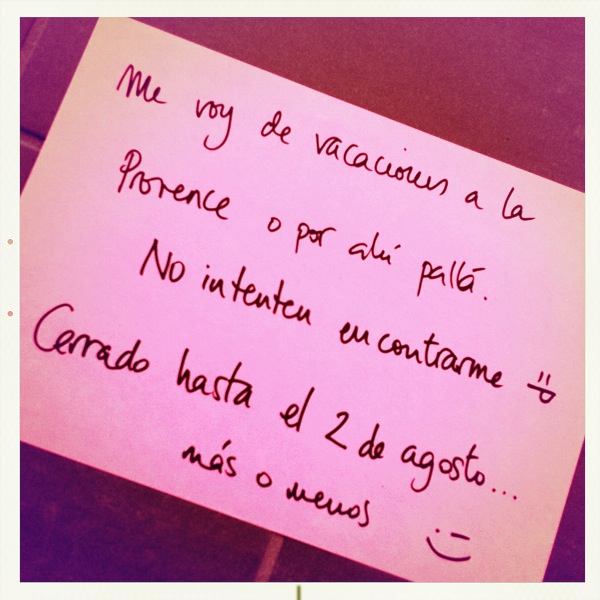 Me voy de vacaciones a la
Provence o por ahí pallá.
No intenten encontrarme =P
Cerrado hasta el 2 de agosto...
más o menos